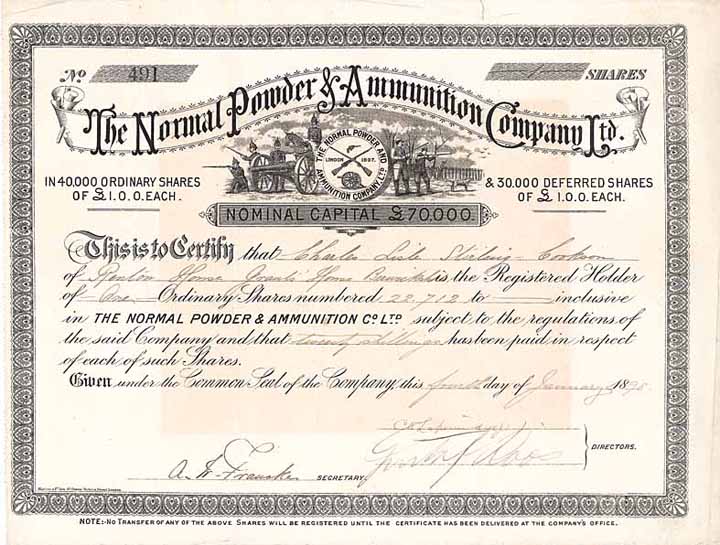 No 491 1 SHARES
The Normal Powder & Ammunition Company Ltd.
THE NORMAL POWDER AND AMMUNITION COMPANY LTD
LONDON 1897.
IN 40,000 ORDINARY SHARES & 30,000 DEFERRED SHARES
OF £1.0.0. EACH. OF £1.0.0. EACH.
NOMINAL CAPITAL £70,000.
This is to Certify that Charles Lisle Stirling Cookson
of Renton House Grants House is the Registered Holder
of One Ordinary Shares numbered 22,712 to — inclusive
in THE NORMAL POWDER & AMMUNITION CO. LTD subject to the regulations of
the said Company and that twenty shillings has been paid in respect
of each of such Shares.
Given under the Common Seal of the Company, this fourth day of January 1898
DIRECTORS.
A. W. Francke SECRETARY.
NOTE:- NO TRANSFER OF ANY OF THE ABOVE SHARES WILL BE REGISTERED UNTIL THE CERTIFICATE HAS BEEN DELIVERED AT THE COMPANY'S OFFICE.